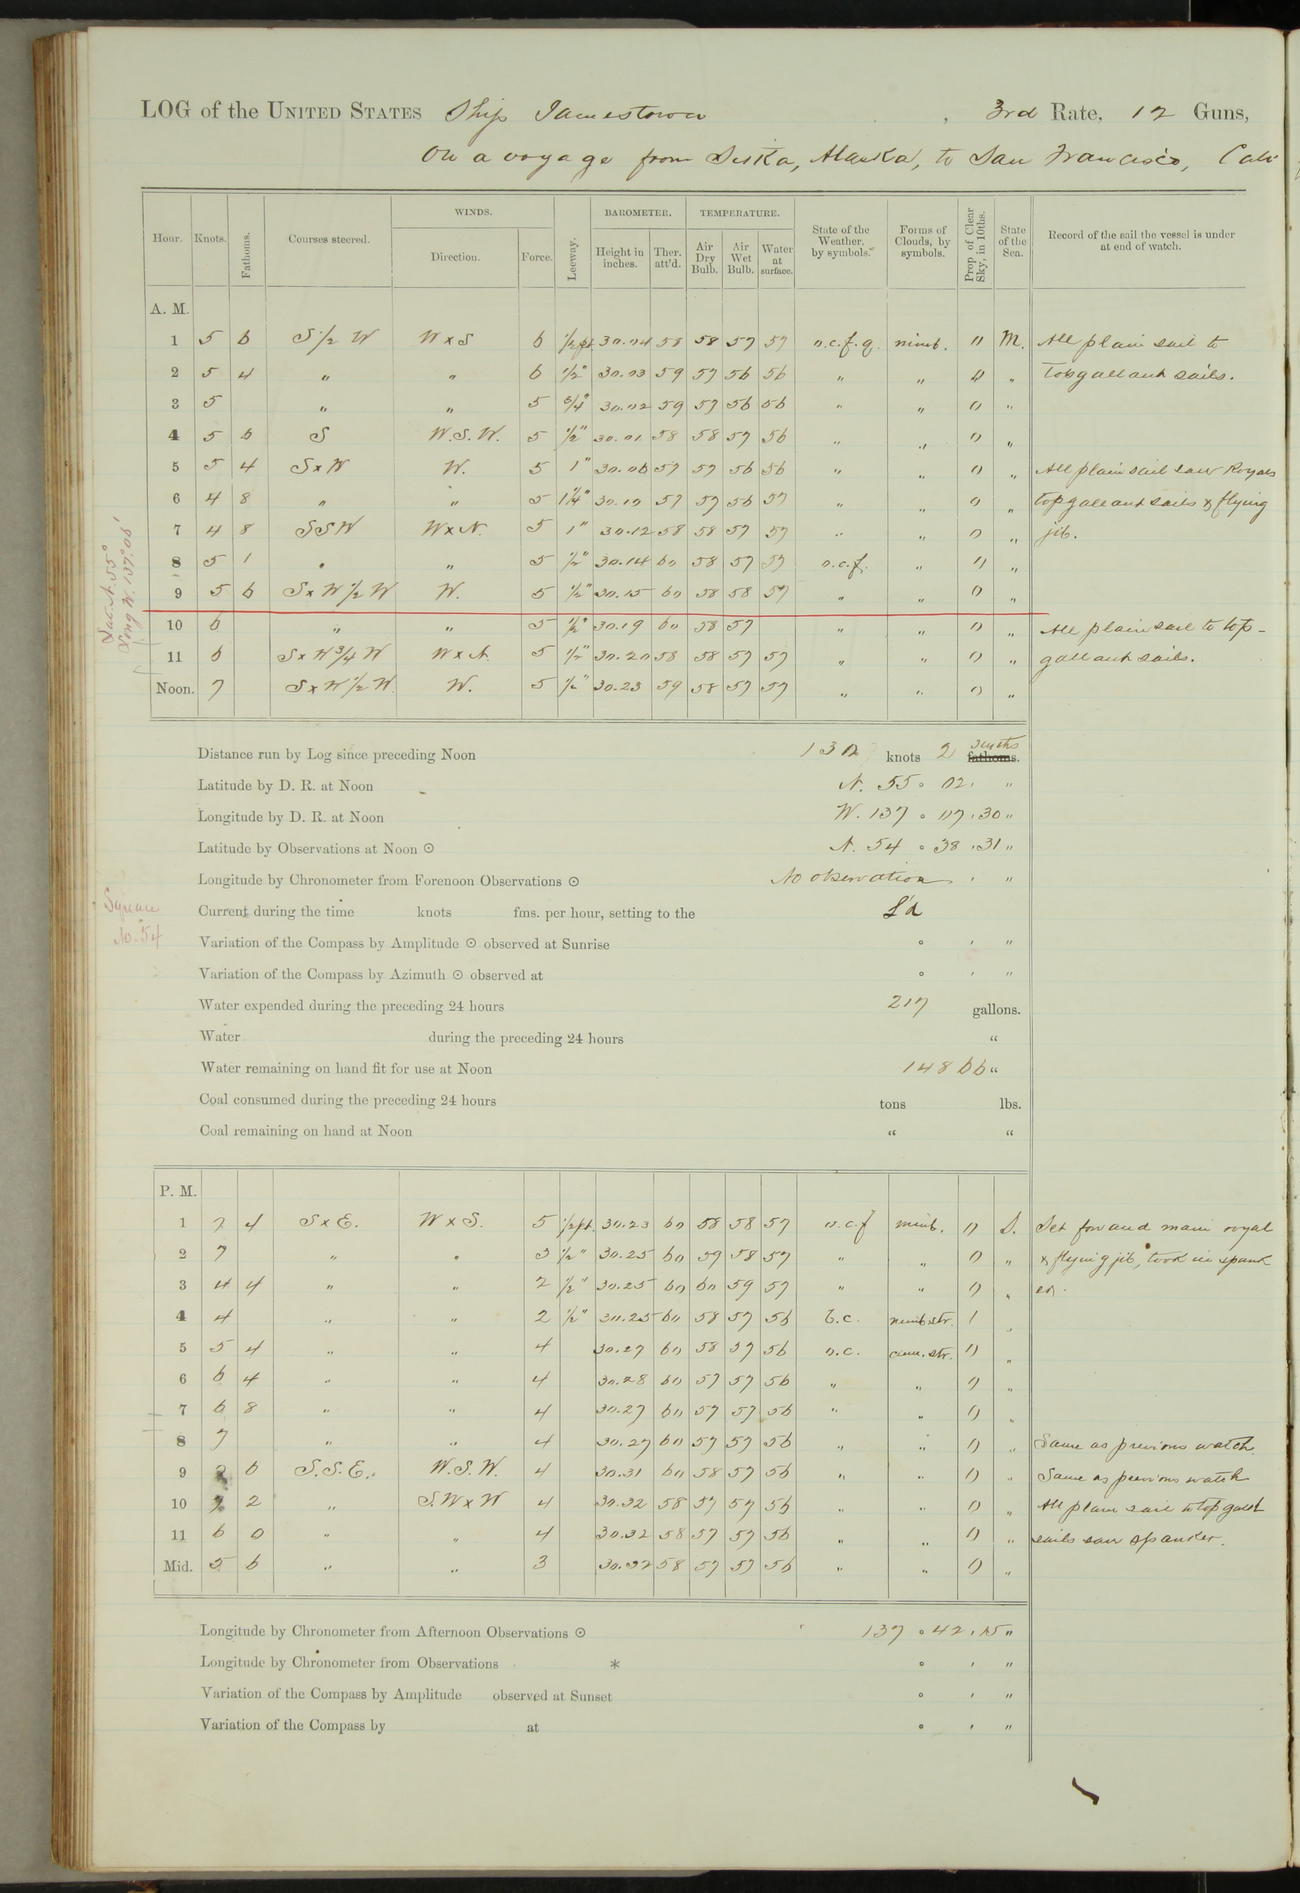 LOG of the UNITED STATES Ship Jamestown , 3rd Rate, 12 Guns,
On a voyage from Sitka, Alaska, to San Francisco, Cali
Hour. Knots. Fathoms. Courses steered. WINDS. Direction. Force. Leeway. BAROMETER. Height in inches. Ther. att'd. TEMPERATURE. Air Dry Bulb. Air Wet Bulb. Water at surface. State of the Weather, by symbols. Forms of Clouds, by symbols. Prop. of Clear Sky, in 10ths. State of the Sea. Record of the sail the vessel is under at end of watch.
A. M.
1 5 6 S 1/2 W W x S 6 1/2 pt. 30.04 58 58 57 57 o.c.f.q. nimb. 0 M. All plain sail to
2 5 4 " " 6 1/2" 30.03 59 57 56 56 " " 0 " topgallant sails.
3 5 " " 5 3/4" 30.02 59 57 56 56 " " 0 "
4 5 6 S W.S.W. 5 1/2" 30.01 58 58 57 56 " " 0 "
5 5 4 S x W W. 5 1" 30.06 57 57 56 56 " " 0 " All plain sail save Royals
6 4 8 " " 5 1 1/4" 30.10 57 57 56 57 " " 0 " topgallant sails & flying
7 4 8 SSW W x N. 5 1" 30.12 58 58 57 57 " " 0 " jib.
8 5 1 " " 5 1/2" 30.14 60 58 57 57 o.c.f. " 0 "
9 5 6 S x W 1/2 W W. 5 1/2" 30.15 60 58 58 57 " " 0 "
10 6 " " 5 1/2" 30.19 60 58 57 " " 0 " All plain sail to top-
11 6 S x W 3/4 W W x N. 5 1/2" 30.20 58 58 57 57 " " 0 " gallant sails.
Noon. 7 S x W 1/2 W. W. 5 1/2" 30.23 59 58 57 57 " " 0 "
Lat. N. 55°
Long W. 137° 06'
Distance run by Log since preceding Noon 132 knots 2 tenths fathoms.
Latitude by D. R. at Noon N. 55 ° 02 ' "
Longitude by D. R. at Noon W. 137 ° 07 ' 30 "
Latitude by Observations at Noon ⊙ N. 54 ° 38 ' 31 "
Longitude by Chronometer from Forenoon Observations ⊙ No observation ' "
Square
No. 54
Current during the time knots fms. per hour, setting to the
Variation of the Compass by Amplitude ⊙ observed at Sunrise ° ' "
Variation of the Compass by Azimuth ⊙ observed at ° ' "
Water expended during the preceding 24 hours 217 gallons.
Water during the preceding 24 hours "
Water remaining on hand fit for use at Noon 14866 "
Coal consumed during the preceding 24 hours tons lbs.
Coal remaining on hand at Noon " "
P. M.
1 7 4 S x E. W x S. 5 1/2 pt. 30.23 60 58 58 57 o.c.f nimb. 0 S. Set fore and main royal
2 7 " " 3 1/2" 30.25 60 59 58 57 " " 0 " & flying jib, took in spank
3 4 4 " " 2 1/2" 30.25 60 60 59 57 " " 0 " er.
4 4 " " 2 1/2" 30.25 60 58 57 56 b.c. nimb. str. 1 "
5 5 4 " " 4 30.27 60 58 57 56 o.c. cum. str. 0 "
6 6 4 " " 4 30.28 60 57 57 56 " " 0 "
7 6 8 " " 4 30.27 60 57 57 56 " " 0 "
8 7 " " 4 30.27 60 57 57 56 " " 0 " Same as previous watch.
9 6 S.S.E. W.S.W. 4 30.31 60 58 57 56 " " 0 " Same as previous watch
10 7 2 " S.W x W 4 30.32 58 57 57 56 " " 0 " All plain sail to top gallt
11 6 0 " " 4 30.32 58 57 57 56 " " 0 " sails save spanker.
Mid. 5 6 " " 3 30.32 58 57 57 56 " " 0 "
Longitude by Chronometer from Afternoon Observations ⊙ 137 ° 42 ' 15 "
Longitude by Chronometer from Observations * ° ' "
Variation of the Compass by Amplitude observed at Sunset ° ' "
Variation of the Compass by at ° ' "